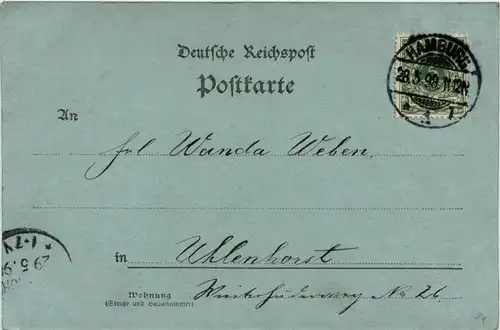 Deutsche Reichspost
Postkarte
HAMBURG
28.5.98.11-12N
* 1 1
An
Frl Wanda Weben.
in Uhlenhorst
Wohnung
(Straße und Hausnummer)
Winterhuderweg No 26.
29
5.9
1-7V